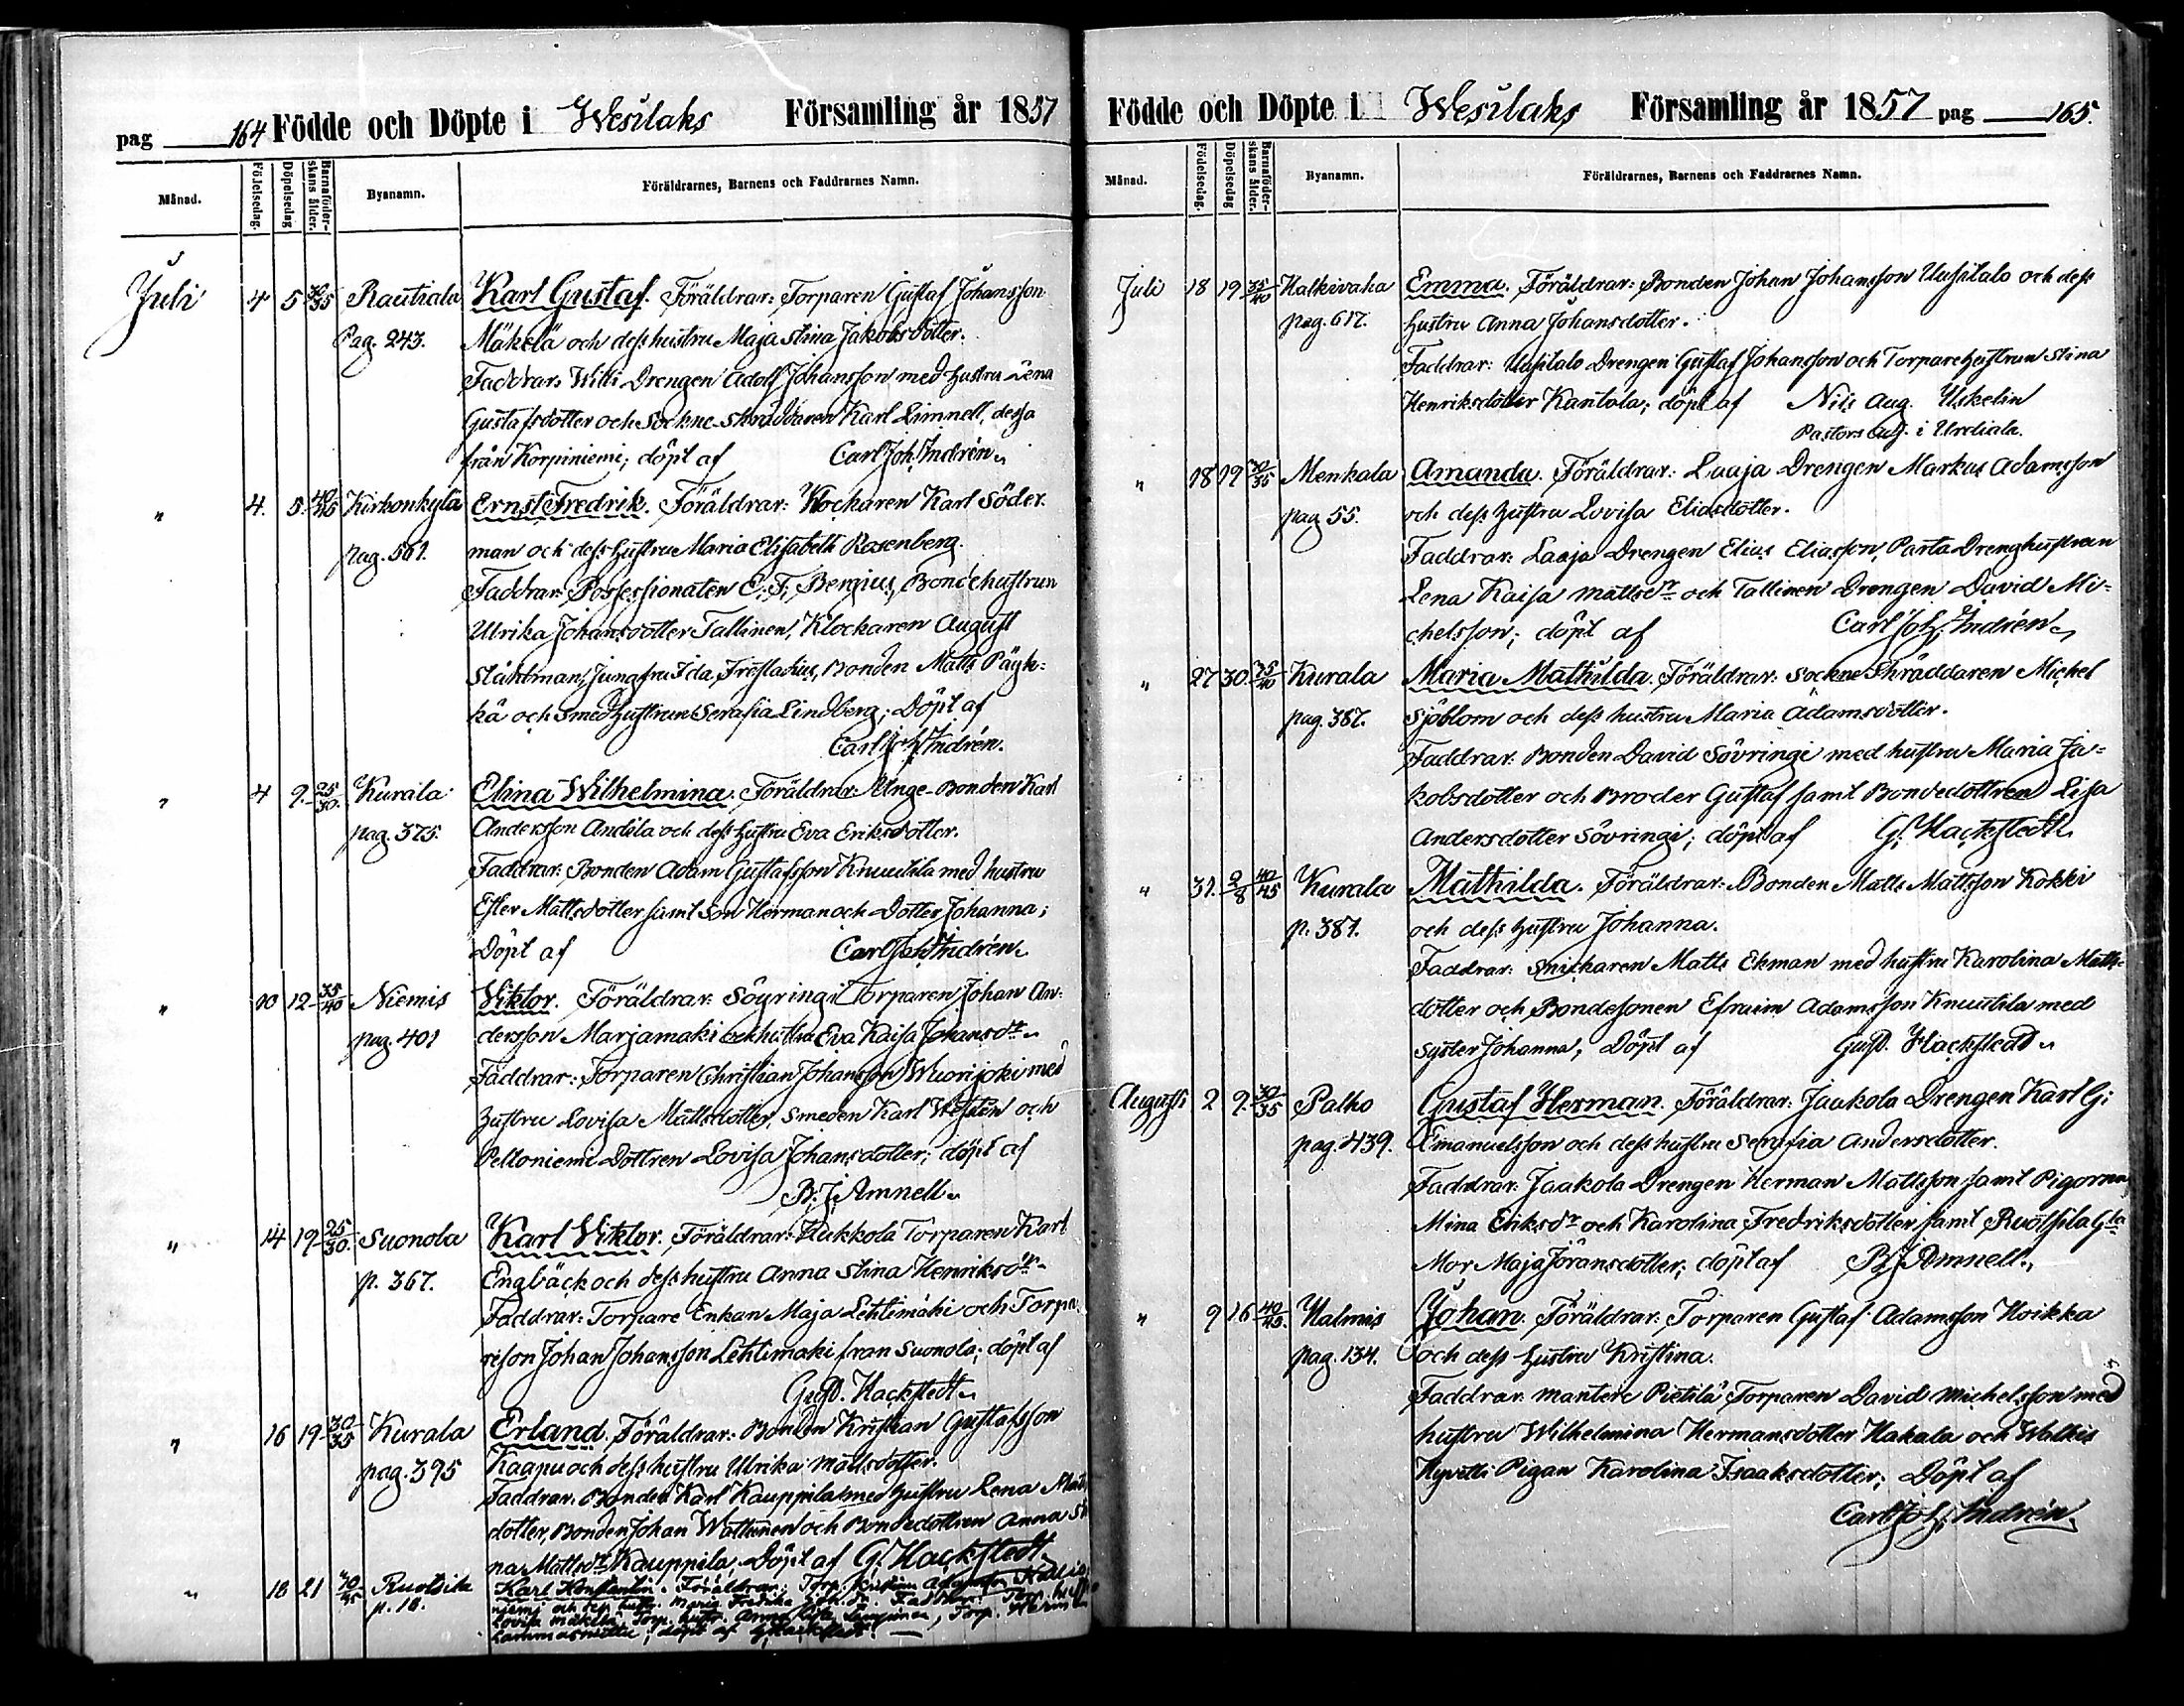 pag 164 Födde och Döpte i Wesilaks Församling år 1857
Månad. Födelsedag. Döpelsedag Barnaföderskans ålder. Byanamn. Föräldrarnes, Barnens och Faddrarnes Namn.
Juli 4 5 30/35 Rautiala Karl Gustaf. Föräldrar: Torparen Gustaf Johansson
Pag. 243. Mäkelä och dess hustru Maja Stina Jakobsdotter.
Faddrar: Willi Drengen Adolf Johansson med hustru Lena
Gustafsdotter och Sockne-Skräddaren Karl Limnell, dessa
från Korpiniemi; döpt af Carl Joh. Indrén
" 4. 5. 40/45 Kirkonkylä Ernst Fredrik. Föräldrar: Klockaren Karl Söder-
pag. 561. man och dess hustru Maria Elisabeth Rosenberg.
Faddrar: Possessionaten C. F. Bergius, Bondehustrun
Ulrika Johansdotter Tallinen, Klockaren August
Ståhlman, Jungfru Ida Frestadius, Bonden Matts Päyk-
kä och Smedhustrun Serafia Lindberg; Döpt af
Carl Joh. Indrén.
" 4 9. 25/30. Kurala Elina Wilhelmina. Föräldrar: Unge-Bonden Karl
pag. 375. Andersson Andila och dess hustru Eva Eriksdotter.
Faddrar: Bonden Adam Gustafsson Knuutila med hustru
Ester Mattsdotter samt Son Herman och Dotter Johanna;
Döpt af Carl Joh. Indrén
" 10 12 35/40 Niemis Viktor. Föräldrar: Söyringi Torparen Johan An-
pag. 401 dersson Marjamaki och hustru Eva Kaisa Johansdr.
Faddrar: Torparen Christian Johansson Wuorijoki med
hustru Lovisa Mattsdotter, Smeden Karl Westén och
Peltoniemi Dottren Lovisa Johansdotter; döpt af
B. J. Amnell.
" 14 19 25/30. Suonola Karl Viktor. Föräldrar: Kukkola Torparen Karl
p. 367. Engbäck och dess hustru Anna Stina Henriksdr.
Faddrar: Torpare Enkan Maja Lehtimäki och Torpa-
reson Johan Johansson Lehtimaki från Suonola; döpt af
Gust. Hackstedt.
" 16 19 30/35 Kurala Erland. Föräldrar: Bonden Kristian Gustafsson
pag. 395 Kaapu och dess hustru Ulrika Mattsdotter.
Faddrar: Bonden Karl Kauppila med hustru Lena Matts
dotter, Bonden Johan Wattunen och Bondedottren Anna Sti
na Mattsdr Kauppila, Döpt af G. Hackstedt
" 18 21 Ruotsila Karl Konstantin. Föräldrar: Torp. Kristian
p. 18. niemi och dess hustr. Maria Fredrika Faddrar: Torp. hustr.
Lovisa Mäkelä, Torp. hustr. Anna Torp. Herm
döpt af G. Hackstedt.
Födde och Döpte i Wesilaks Församling år 1857 pag 165.
Månad. Födelsedag. Döpelsedag Barnaföderskans ålder. Byanamn. Föräldrarnes, Barnens och Faddrarnes Namn.
Juli 18 19 35/40 Halkivaha Emma. Föräldrar: Bonden Johan Johansson Uusitalo och dess
pag. 617. hustru Anna Johansdotter.
Faddrar: Uusitalo Drengen Gustaf Johansson och Torparehustrun Stina
Henriksdotter Kantola; döpt af Nils Aug. Uskelin
Pastors adj. i Urdiala.
" 18 19 30/35 Menkala Amanda. Föräldrar: Laaja Drengen Markus Adamsson
pag 55. och dess hustru Lovisa Eliasdotter.
Faddrar: Laaja Drengen Elias Eliasson, Parta Drenghustrun
Lena Kaisa Mattsdr och Tallinen Drengen David Mi-
chelsson; döpt af Carl Joh. Indrén
" 27 30. 35/40 Kurala Maria Mathilda. Föräldrar: Sockne Skräddaren Michel
pag. 387. Sjöblom och dess hustru Maria Adamsdotter.
Faddrar: Bonden David Sövringi med hustru Maria Ja-
kobsdotter och Broder Gustaf samt Bondedottren Lisa
Andersdotter Sövringi; döpt af G. Hackstedt.
" 31. 2/8 40/45 Kurala Mathilda. Föräldrar: Bonden Matts Mattsson Kokki
p. 381. och dess hustru Johanna.
Faddrar: Snickaren Matts Ekman med hustru Karolina Matts-
dotter och Bondesonen Efraim Adamsson Knuutila med
Syster Johanna; Döpt af Gust. Hackstedt
Augusti 2 9. 30/35 Palho Gustaf Herman. Föräldrar: Jaakola Drengen Karl G.
pag. 439. Emanuelsson och dess hustru Serafia Andersdotter.
Faddrar: Jaakola Drengen Herman Mattsson samt Pigorna
Mina Eriksdr och Karolina Fredriksdotter samt Ruotsila Gla
Mor Maja Jöransdotter; döpt af B J Amnell.
" 9 16 40/45. Halmis Johan. Föräldrar: Torparen Gustaf Adamsson Hoikka
pag. 134. och dess hustru Kristina.
Faddrar: Mantere Pietilä Torparen David Michelsson med
hustru Wilhelmina Hermansdotter Hakala och Walkis
Hyvetti Pigan Karolina Isaaksdotter; Döpt af
Carl Joh. Indrén